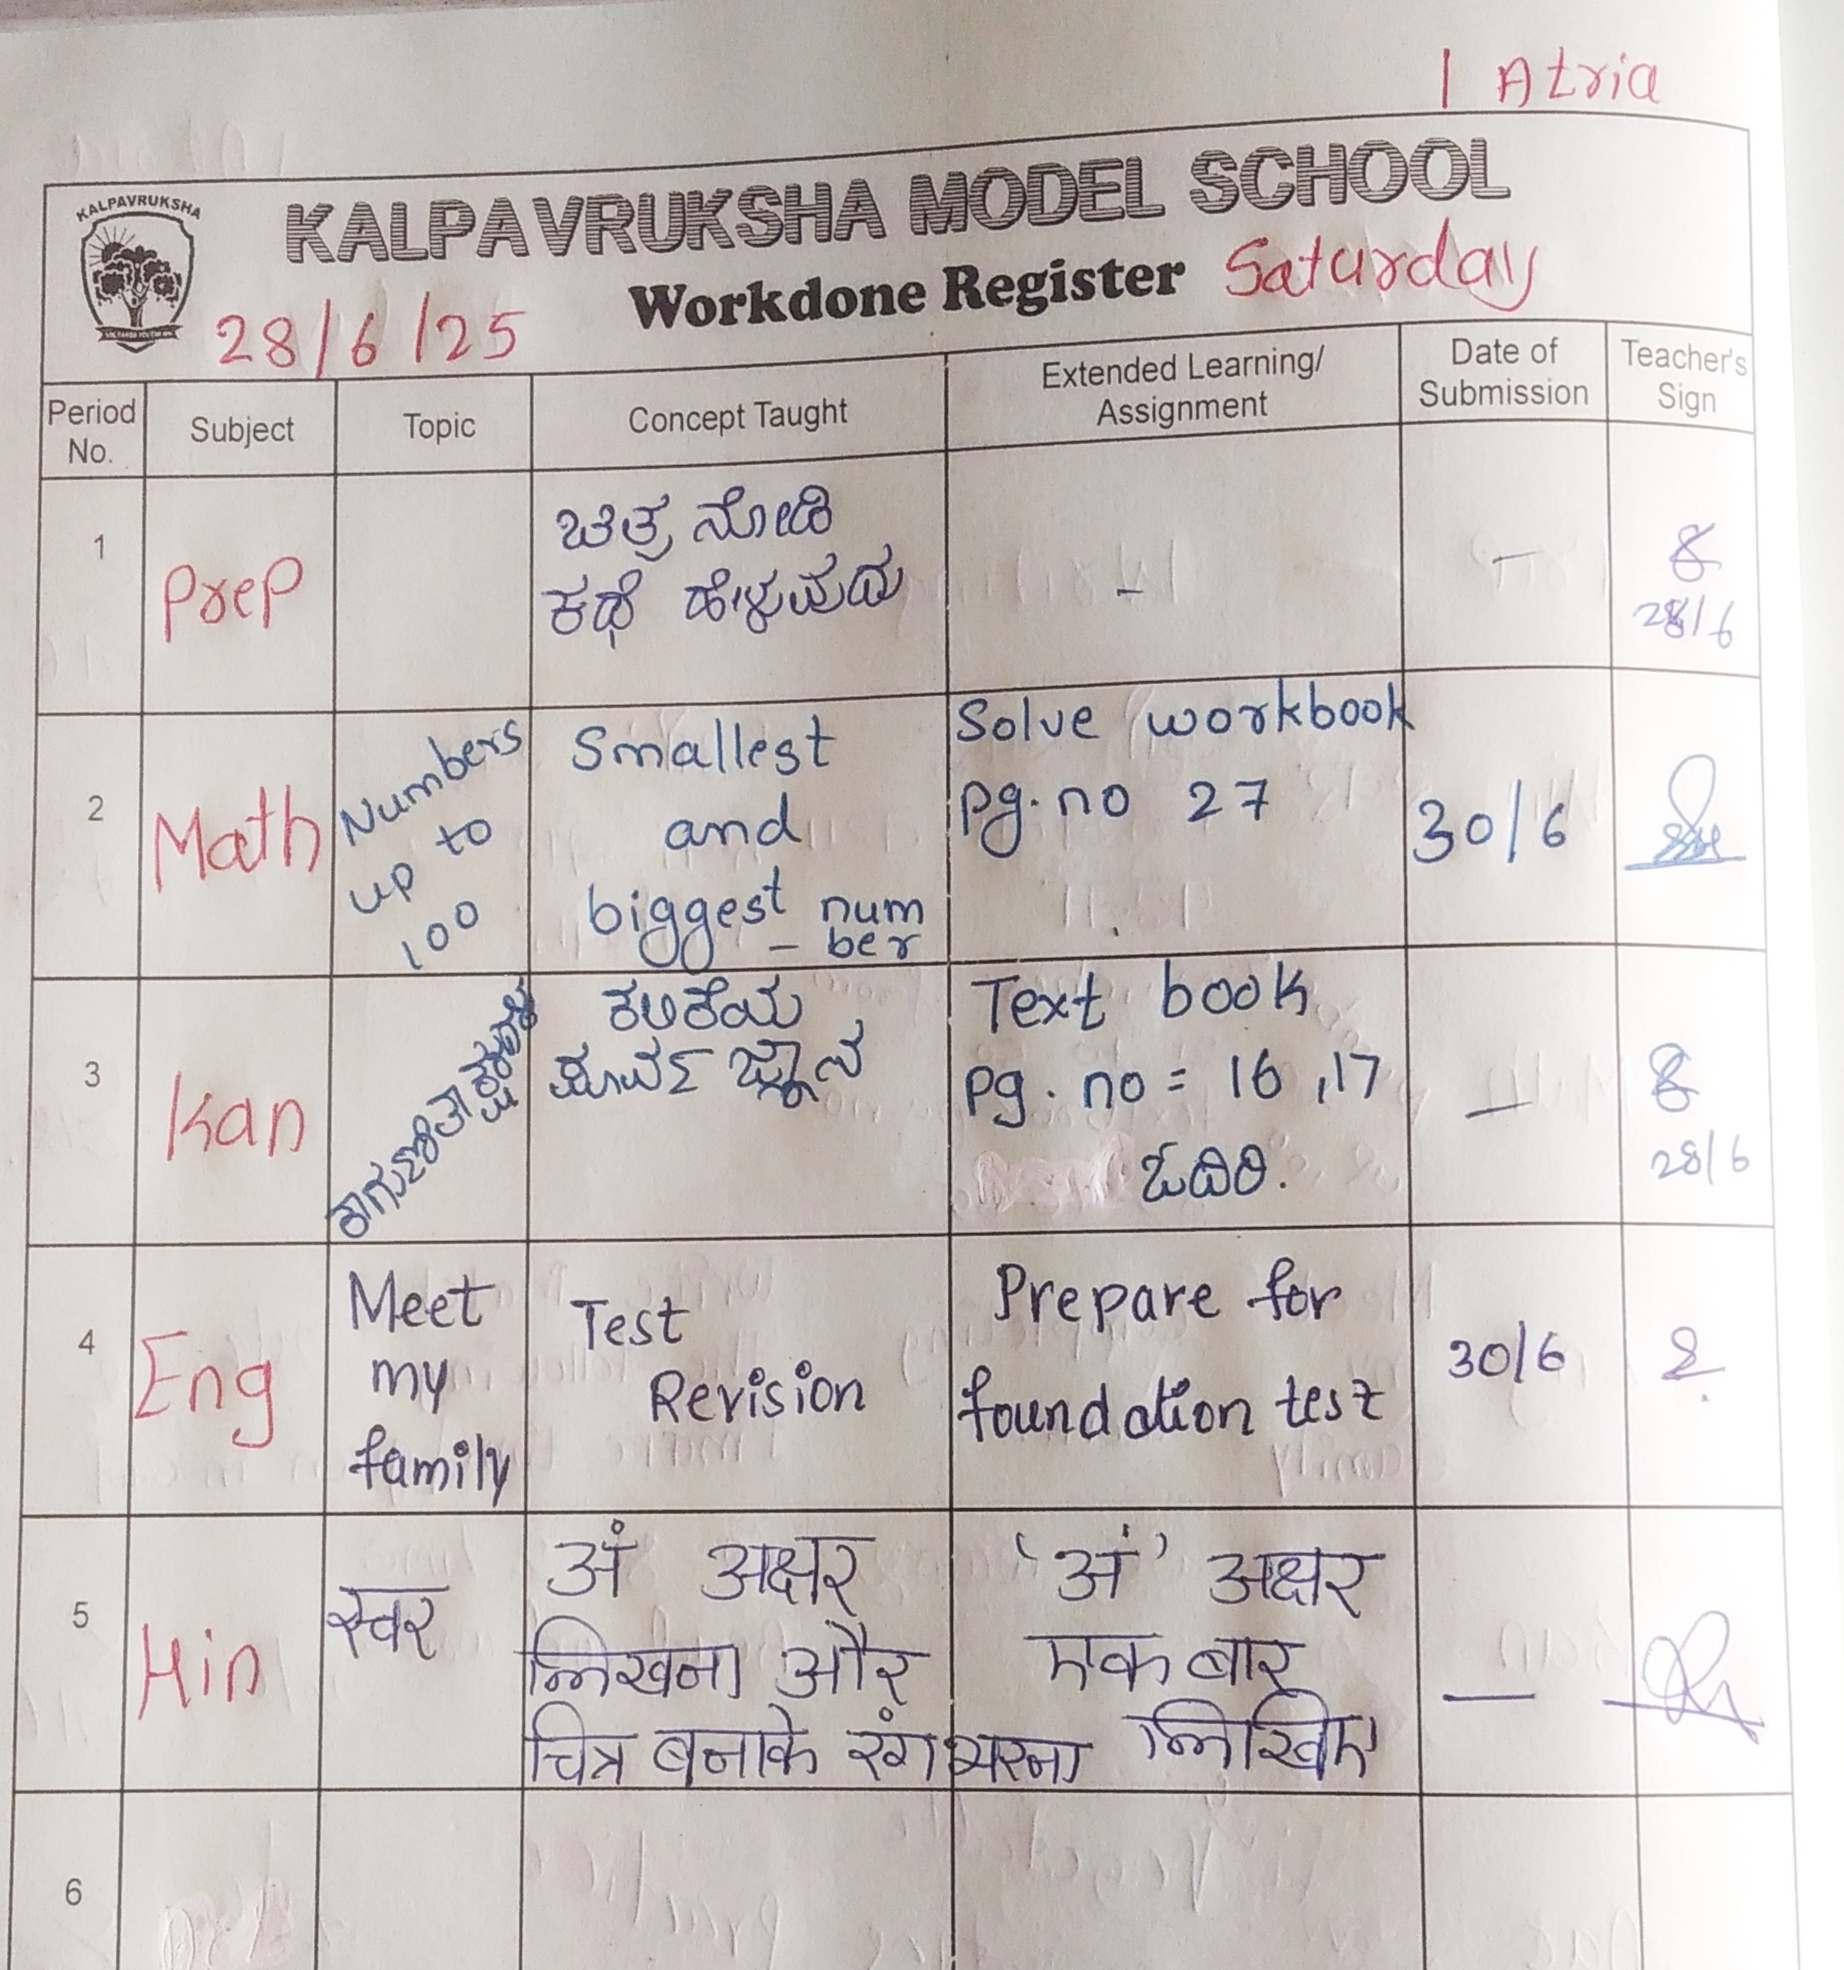 1 Atria
KALPAVRUKSHA
KALPAVRUKSHA MODEL SCHOOL
28/6/25
Workdone Register Saturday
Period No.
Subject
Topic
Concept Taught
Extended Learning/
Assignment
Date of
Submission
Teacher's
Sign
1
Prep
ಚಿತ್ರ ನೋಡಿ
ಕಥೆ ಹೇಳುವುದು
-
-
28/6
2
Math
Numbers
up to
100
Smallest
and
biggest num
- ber
Solve workbook
pg.no 27
30/6
3
Kan
ಕಲಿಕೆಯ
ಪೂರ್ವ ಜ್ಞಾನ
Text book
pg. no = 16,17
ಓದಿರಿ.
-
28/6
4
Eng
Meet
my
family
Test
Revision
Prepare for
foundation test
30/6
5
Hin
स्वर
अं अक्षर
लिखना और
चित्र बनाके रंग भरना
'अं' अक्षर
एक बार
लिखिए
-
6